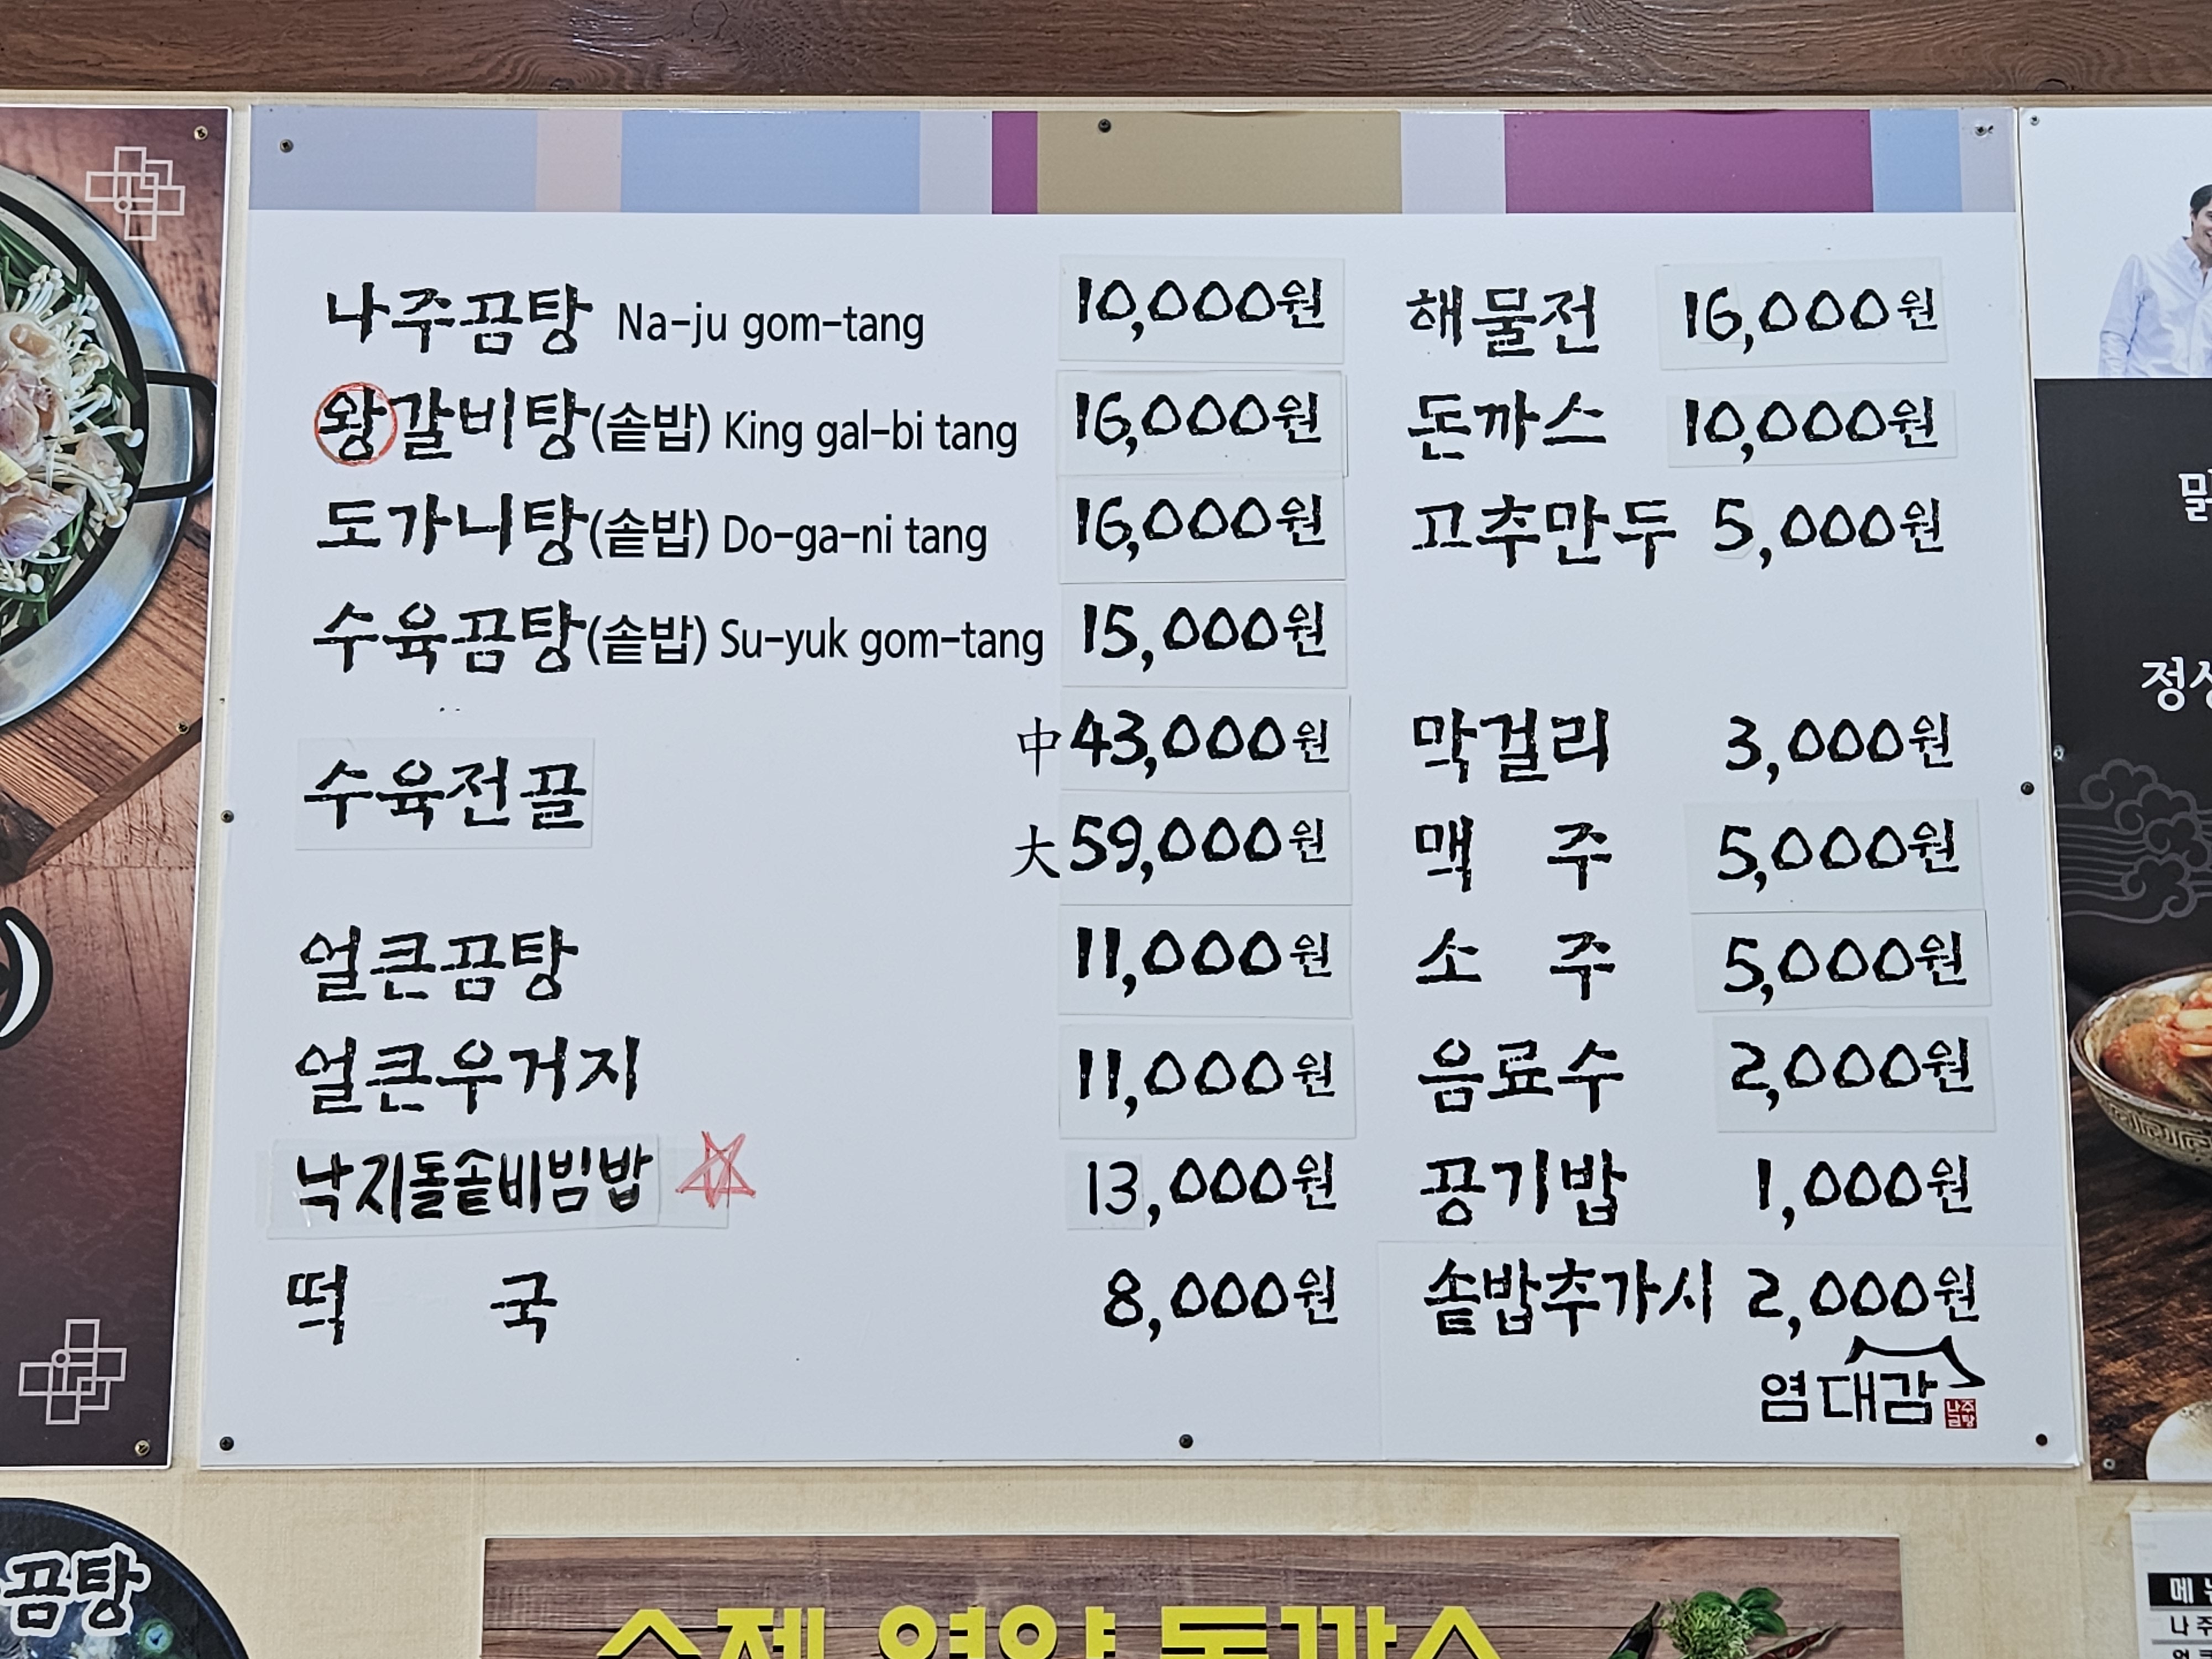 나주곰탕 Na-ju gom-tang 10,000원
왕갈비탕(솥밥) King gal-bi tang 16,000원
도가니탕(솥밥) Do-ga-ni tang 16,000원
수육곰탕(솥밥) Su-yuk gom-tang 15,000원
수육전골
中 43,000원
大 59,000원
얼큰곰탕 11,000원
얼큰우거지 11,000원
낙지돌솥비빔밥 13,000원
떡 국 8,000원
해물전 16,000원
돈까스 10,000원
고추만두 5,000원
막걸리 3,000원
맥 주 5,000원
소 주 5,000원
음료수 2,000원
공기밥 1,000원
솥밥추가시 2,000원
염대감
나주
곰탕
곰탕